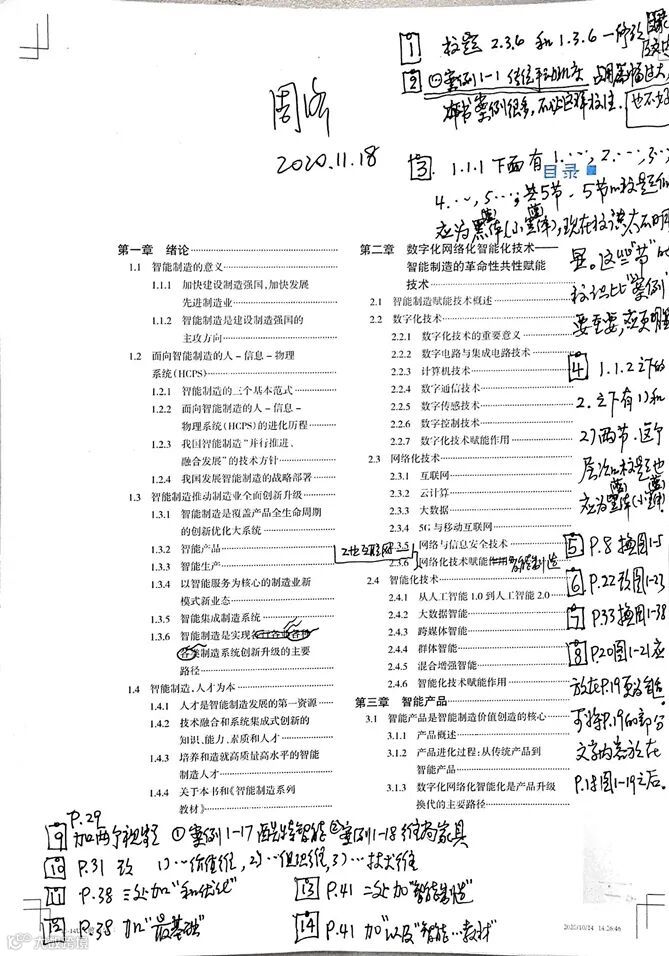 1 校题 2.3.6 和 1.3.6 一修改
2 ①案例1-1
本书案例很多,不必这样校注.
也不
周济
2020.11.18
3 1.1.1 下面有 1.…, 2.…, 3…
目录
4.…, 5.…, 共5节. 5节
应为黑体(小黑体),现在
显。这些"节"的
比"案例"
要重要,应更明显
第一章 绪论
1.1 智能制造的意义
1.1.1 加快建设制造强国,加快发展
先进制造业
1.1.2 智能制造是建设制造强国的
主攻方向
1.2 面向智能制造的人-信息-物理
系统(HCPS)
1.2.1 智能制造的三个基本范式
1.2.2 面向智能制造的人-信息-
物理系统(HCPS)的进化历程
1.2.3 我国智能制造"并行推进、
融合发展"的技术方针
1.2.4 我国发展智能制造的战略部署
1.3 智能制造推动制造业全面创新升级
1.3.1 智能制造是覆盖产品全生命周期
的创新优化大系统
1.3.2 智能产品
1.3.3 智能生产
1.3.4 以智能服务为核心的制造业新
模式新业态
1.3.5 智能集成制造系统
1.3.6 智能制造是实现各行各业各种
各类制造系统创新升级的主要
路径
1.4 智能制造,人才为本
1.4.1 人才是智能制造发展的第一资源
1.4.2 技术融合和系统集成式创新的
知识、能力、素质和人才
1.4.3 培养和造就高质量高水平的智能
制造人才
1.4.4 关于本书和《智能制造系列
教材》
第二章 数字化网络化智能化技术——
智能制造的革命性共性赋能
技术
2.1 智能制造赋能技术概述
2.2 数字化技术
2.2.1 数字化技术的重要意义
2.2.2 数字电路与集成电路技术
2.2.3 计算机技术
2.2.4 数字通信技术
2.2.5 数字传感技术
2.2.6 数字控制技术
2.2.7 数字化技术赋能作用
2.3 网络化技术
2.3.1 互联网
2.3.2 云计算
2.3.3 大数据
2.3.4 5G与移动互联网
2.3.5 网络与信息安全技术
工业互联网
2.3.6 网络化技术赋能作用 智能制造
2.4 智能化技术
2.4.1 从人工智能1.0到人工智能2.0
2.4.2 大数据智能
2.4.3 跨媒体智能
2.4.4 群体智能
2.4.5 混合增强智能
2.4.6 智能化技术赋能作用
第三章 智能产品
3.1 智能产品是智能制造价值创造的核心
3.1.1 产品概述
3.1.2 产品进化过程:从传统产品到
智能产品
3.1.3 数字化网络化智能化是产品升级
换代的主要路径
4 1.1.2 之下的
2.之下有1)和
2)两节.这个
层次
应为黑体(小
5 P.8 换图1-5
6 P.22 改图1-23
7 P.33 换图1-38
8 P.20 图1-21应
放在P.19
可将P.19的部分
文字内容放在
P.18图1-19之后.
P.29
9 加两个视频 ①案例1-17 酷特智能②案例1-18 维尚家具
10 P.31 改 1)…价值维, 2)…组织维, 3)…技术维
11 P.38 三处加"和优化"
12 P.38 加"最基础"
13 P.41 二处加"智能制造"
14 P.41 加"以及"智能…教材"
2020/10/24 14:26:46